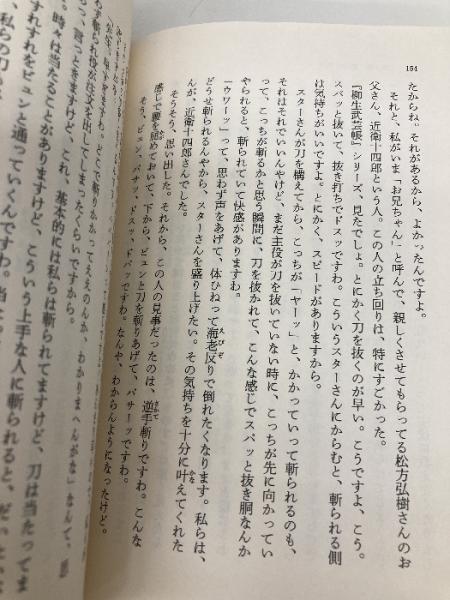 154
たからね。それがあるから、よかったんですよ。
それと、私がいま「お兄ちゃん」と呼んで、親しくさせてもらってる松方弘樹さんのお
父さん、近衛十四郎という人。この人の立ち回りは、特にすごかった。
『柳生武芸帳』シリーズ、見たでしょ。とにかく刀を抜くのが早い。こうですよ、こう。
スパッと抜いて、抜き打ちでドスッですわ。こういうスターさんにからむと、斬られる側
は気持ちがいいですよ。とにかく、スピードがありますから。
スターさんが刀を構えてから、こっちが「ヤーッ」と、かかっていって斬られるのも、
それはそれでいいんやけど、まだ主役が刀を抜いていない時に、こっちが先に向かってい
って、こっちが斬るかと思う瞬間に、刀を抜かれて、こんな感じでスパッと抜き胴なんか
やられると、斬られていて快感がありますわ。
「ウワーッ」って、思わず声をあげて、体ひねって海老反りで倒れたくなります。私らは、
どうせ斬られるんやから、スターさんを盛り上げたい。その気持ちを十分に叶えてくれた
んが、近衛十四郎さんでした。
そうそう、思い出した。それから、この人の見事だったのは、逆手斬りですわ。こんな
感じで腰を屈めておいて、下から、ビュンと刀を斬りあげて、バサーッですわ。
そう、ビュン、バサッ、ドスッ、ドバッですわ。なんや、わからんようになったけど。
わず斬られ役が注文を出してしまったくらいですから。
と、言っときますけど、これ、基本的には私らは斬られてますけど、刀は当たってま
。時々は当たることがありますけど、こういう上手な人に斬られると、だいたい、
すれすれをビュンと通っていくんですわ。
私らの刀